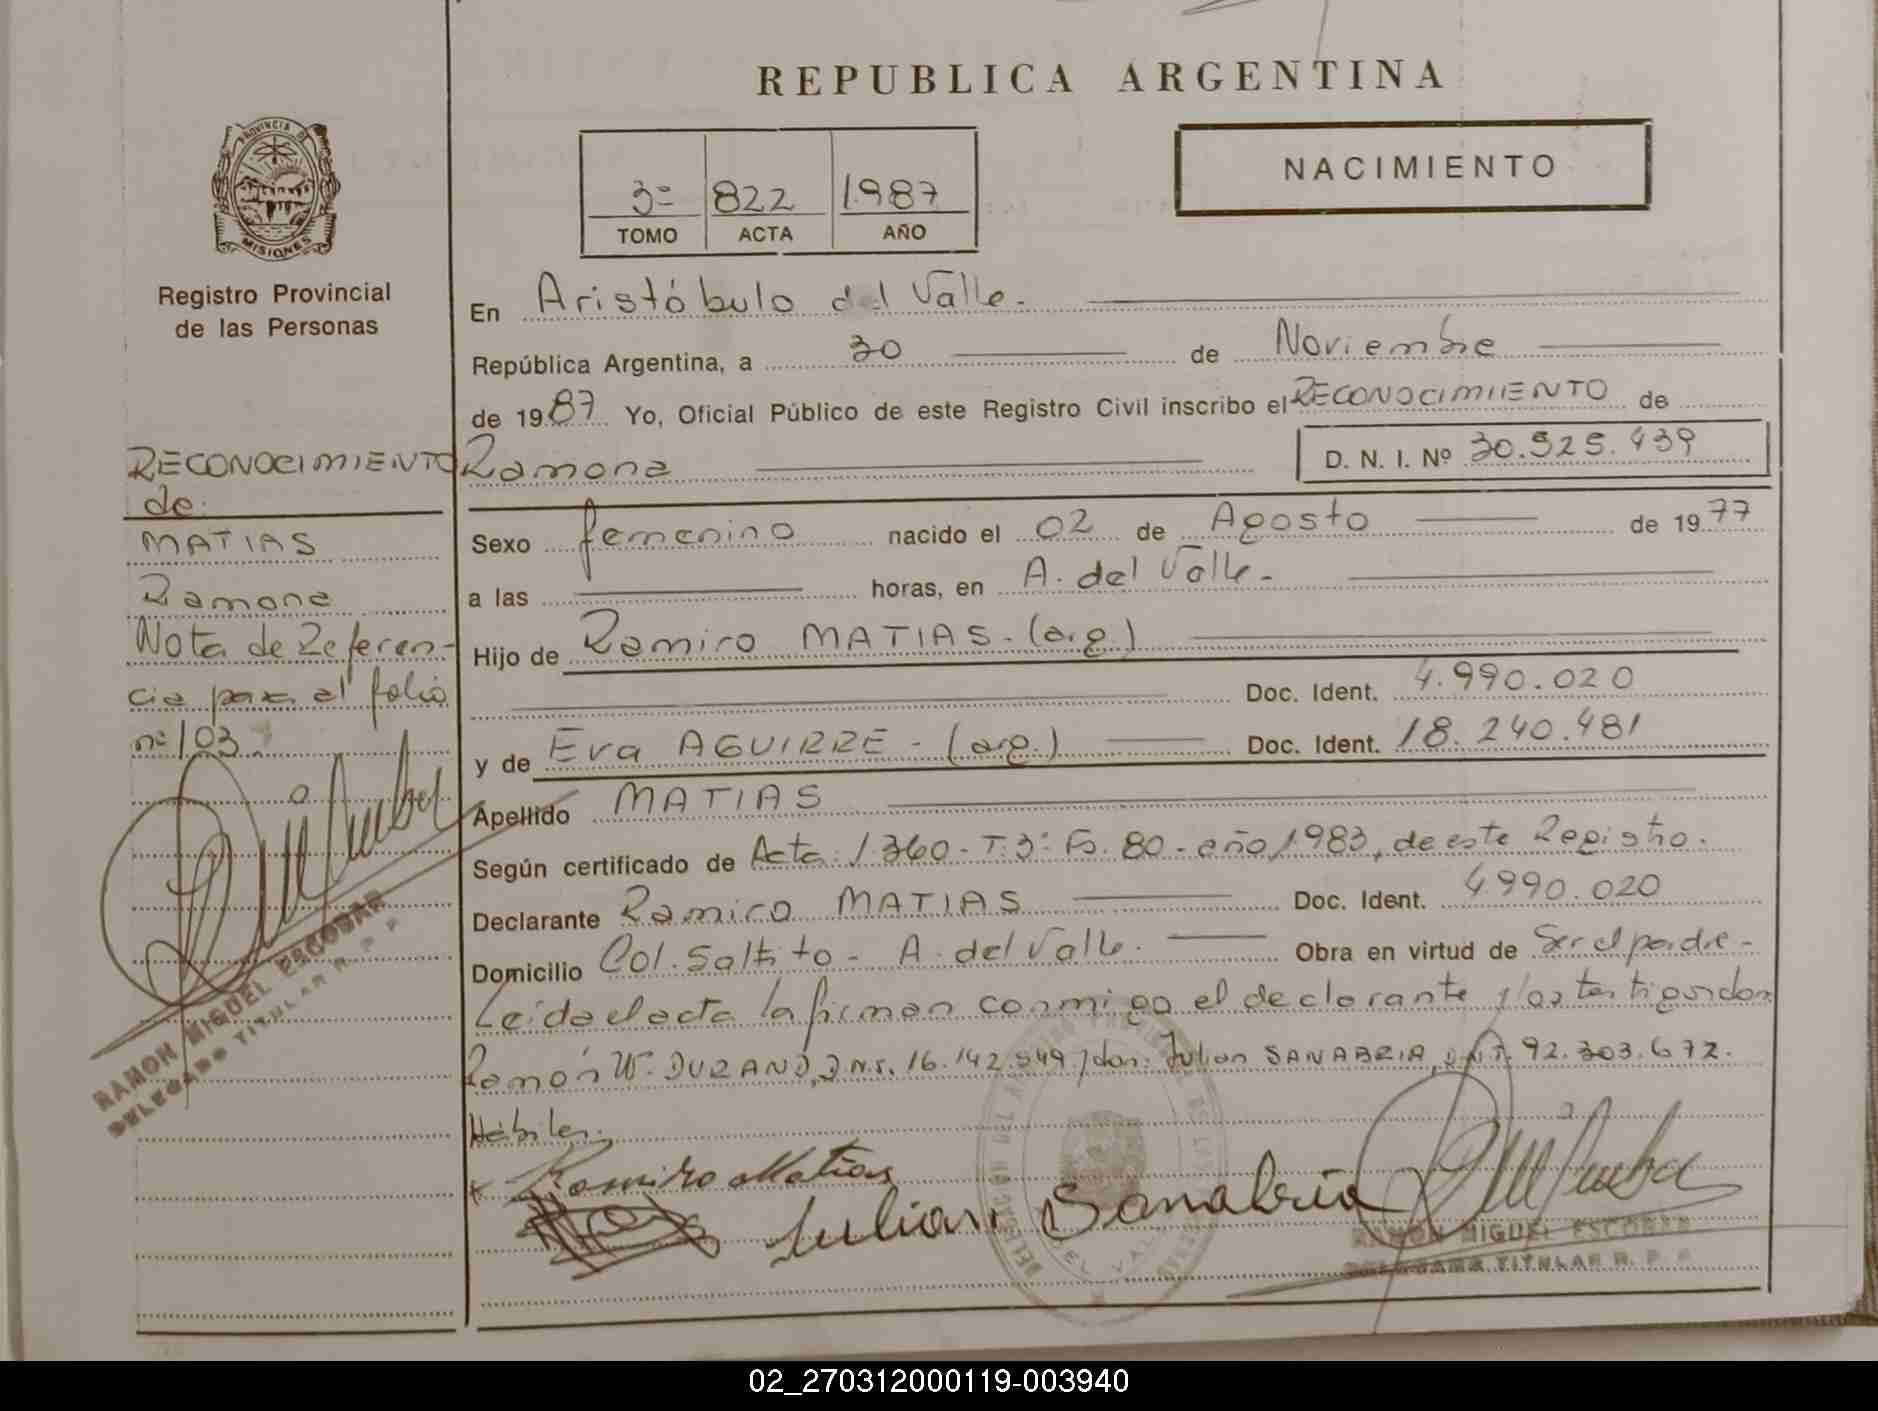 REPUBLICA ARGENTINA
NACIMIENTO
3º 822 1987
TOMO ACTA AÑO
PROVINCIA D
MISIONES
Registro Provincial
de las Personas
RECONOCIMIENTO
de:
MATIAS
Ramona
Nota de Referen-
cia para el folio
nº 103.
RAMON MIGUEL ESCOBAR
DELEGADO TITULAR R. P. P.
En Aristóbulo del Valle.
República Argentina, a 30 de Noviembre
de 1987 Yo, Oficial Público de este Registro Civil inscribo el RECONOCIMIENTO de
Ramona D. N. I. Nº 30.525.439
Sexo femenino nacido el 02 de Agosto de 1977
a las horas, en A. del Valle.
Hijo de Ramiro MATIAS. (arg.)
Doc. Ident. 4.990.020
y de Eva AGUIRRE - (arg.) Doc. Ident. 18.240.481
Apellido MATIAS
Según certificado de Acta: 1360 - T. 3º Fo. 80 - año 1983, de este Registro.
Declarante Ramiro MATIAS Doc. Ident. 4.990.020
Domicilio Col. Saltito - A. del Valle. Obra en virtud de Ser el padre -
Leída el acta la firman conmigo el declarante y los testigos: don
Ramón W. DURAND, D.N.I. 16.142.549 y don: Julian SANABRIA, D.N.I. 92.303.672.
Hábiles.
x Ramiro Matias
Julian Sanabria
RAMON MIGUEL ESCOBAR
DELEGADO TITULAR R. P. P.
02_270312000119-003940